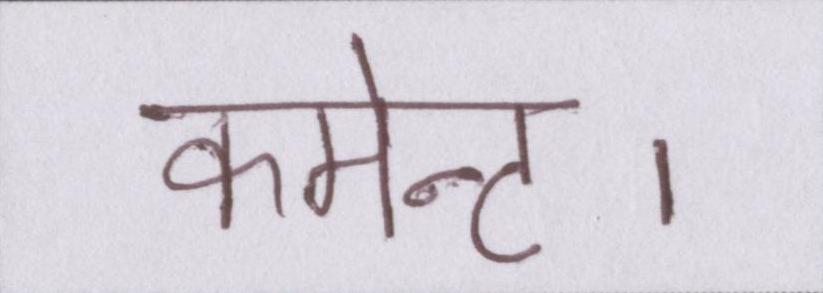 कमेन्ट ।